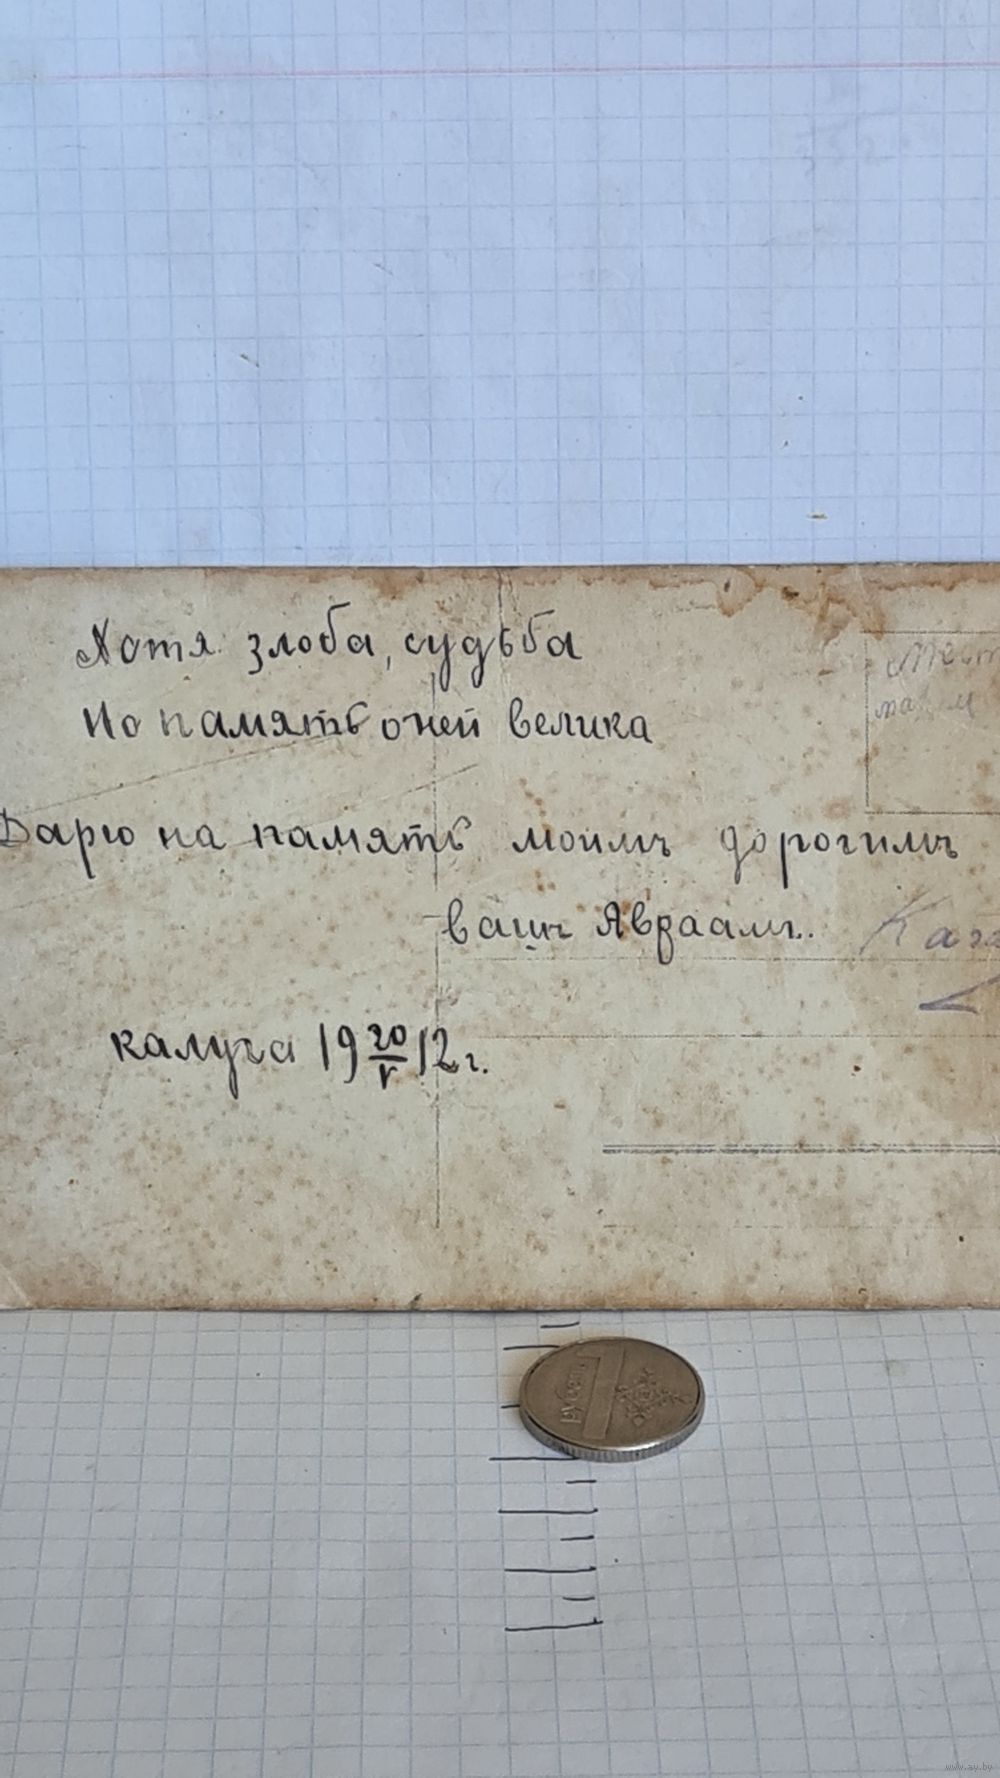 Хотя злоба, судьба
Но память о ней велика
Дарю на память моимъ дорогимъ
вашъ Авраамъ..
калуга 19 20/V 12 г.
рубель
www.ay.by